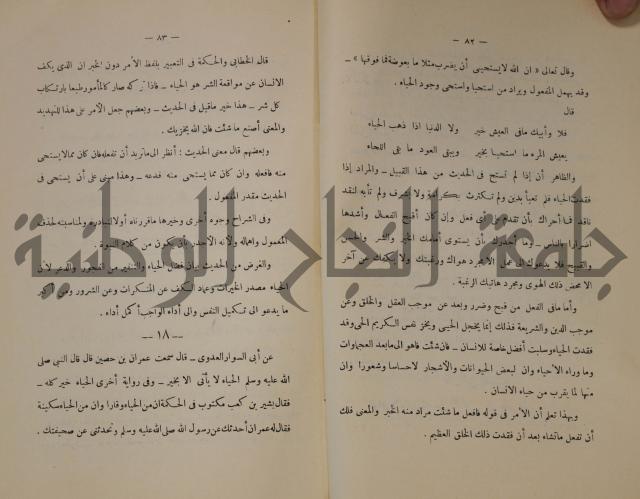 — ٨٢ —
وقال تعالى « ان الله لا يستحيي أن يضرب مثلا ما بعوضة فما فوقها » —
وقد يهمل المفعول ويراد من استحيا واستحى وجود الحياء .
قال
فلا وأبيك مافى العيش خير ولا الدنيا اذا ذهب الحياء
يعيش المرء ما استحيا بخير ويبقى العود ما بقى اللحاء
والظاهر أن إذا لم تستح فى الحديث من هذا القبيل — والمراد إذا
فقدت الحياء فلم تعبأ بدين ولم تكترث بكرامة ولا بشرف ولم تأبه لنقد
ناقد فما أحراك بأن تقدم على أى فعل وإن كان أقبح الفعال وأشدها
اضرارا بالناس — وما أجدرك بأن يستوى أمامك الخير والشر والحسن
والقبيح فلا يدعوك الى عمل الا مجرد هواك ورغبتك ولا يكفك عن آخر
الا محض ذلك الهوى ومجرد هاتيك الرغبة .
وأما مافى الفعل من قبح وضرر وبعد عن موجب العقل والخلق وعن
موجب الدين والشريعة فذلك إنما يخجل الحيى ويحز نفس الكريم الحى وقد
فقدت الحياء وسلبت أفضل خاصة للانسان — فان شئت فاهو الى ما بعد العجماوات
وما وراء الأحياء وان لبعض الحيوانات والأشجار لاحساسا وشعورا وان
منها لما يقرب من حياء الانسان .
وبهذا تعلم أن الأمر فى قوله فافعل ما شئت مراد منه الخبر والمعنى فلك
أن تفعل ماتشاء بعد أن فقدت ذلك الخلق العظيم .
— ٨٣ —
قال الخطابى والحكمة فى التعبير بلفظ الأمر دون الخبر ان الذى يكف
الانسان عن مواقعة الشر هو الحياء — فاذا تركه صار كالمأمور طبعا بارتكاب
كل شر — هذا خير ماقيل فى الحديث — وبعضهم جعل الأمر على هذا للتهديد
والمعنى أصنع ما شئت فان الله يخزيك .
وبعضهم قال معنى الحديث : أنظر الى ماتريد أن تفعله فان كان ممالا يستحى
منه فافعله وان كان مما يستحى منه فدعه — وهذا مبنى على أن يستحى فى
الحديث مقدر المفعول .
وفى الشراح وجوه أخرى وخيرها ماقررناه أولا لتبادره ولمناسبته لحذف
المفعول واهماله ولأنه الأجدر بأن يكون من كلام النبوة .
والغرض من الحديث بيان فضل الحياء والتنفير من الفجور والذعر لأن
الحياء مصدر الخيرات وعماد الكف عن المنكرات وعن الشرور ومن أكبر
ما يدعو الى تكميل النفس والى أداء الواجب أكمل أداء .
— ١٨ —
عن أبى السوار العدوى — قال سمعت عمران بن حصين قال قال النبى صلى
الله عليه وسلم الحياء لا يأتى الا بخير — وفى رواية أخرى الحياء خير كله —
فقال بشير بن كعب مكتوب فى الحكمة ان من الحياء وقارا وان من الحياء سكينة
فقال له عمران أحدثك عن رسول الله صلى الله عليه وسلم وتحدثنى عن صحيفتك .
جامعة النجاح الوطنية